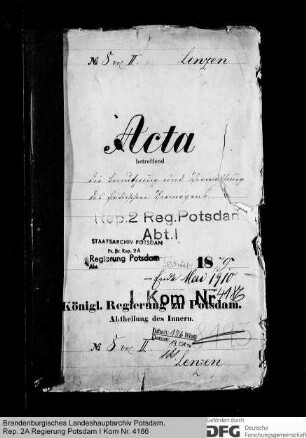 № 5 II. Lenzen
Acta
betreffend
die Benutzung und Verwaltung
des städtischen Vermögens
Rep.2 Reg.Potsdam
Abt.I
STAATSARCHIV POTSDAM
Pr. Br. Rep. 2A
Regierung Potsdam
18
Ende Mai 1910
I Kom Nr. 4186
Königl. Regierung zu Potsdam.
Abtheilung des Innern.
Inhalt: 186
Datum:
№ 5 II.
Lenzen
Brandenburgisches Landeshauptarchiv Potsdam,
Rep. 2A Regierung Potsdam I Kom Nr. 4186
Gefördert durch
DFG Deutsche
Forschungsgemeinschaft